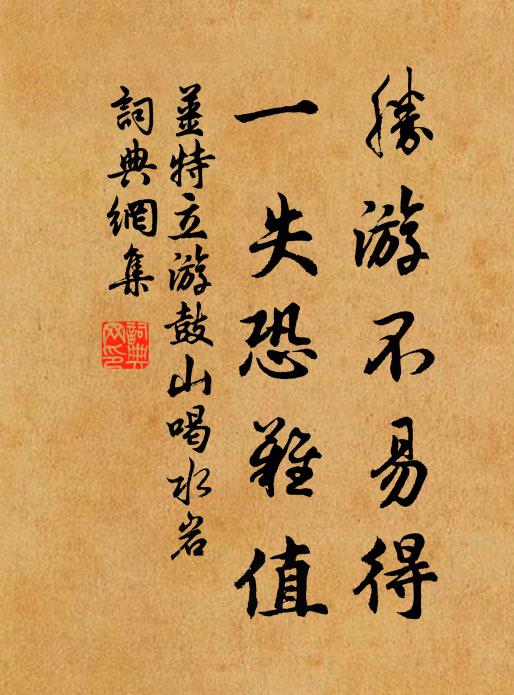 勝游不易得
一失恐難值
姜特立游鼓山喝水岩
詞典網集
詞典網印